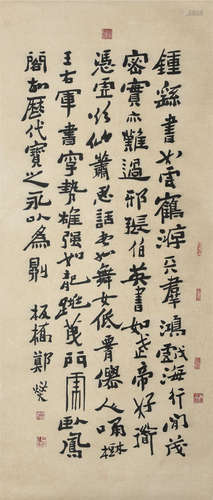 鍾繇書如雲鶴游天群鴻戲海行間茂
密實亦難過邪張伯英書如武帝好衜
憑虛欲仙蕭思話書如舞女低腰僊人嘯樹
王右軍書字勢雄強如龍跳天門虎臥鳳
閣故歷代寶之永以為訓 板橋鄭燮